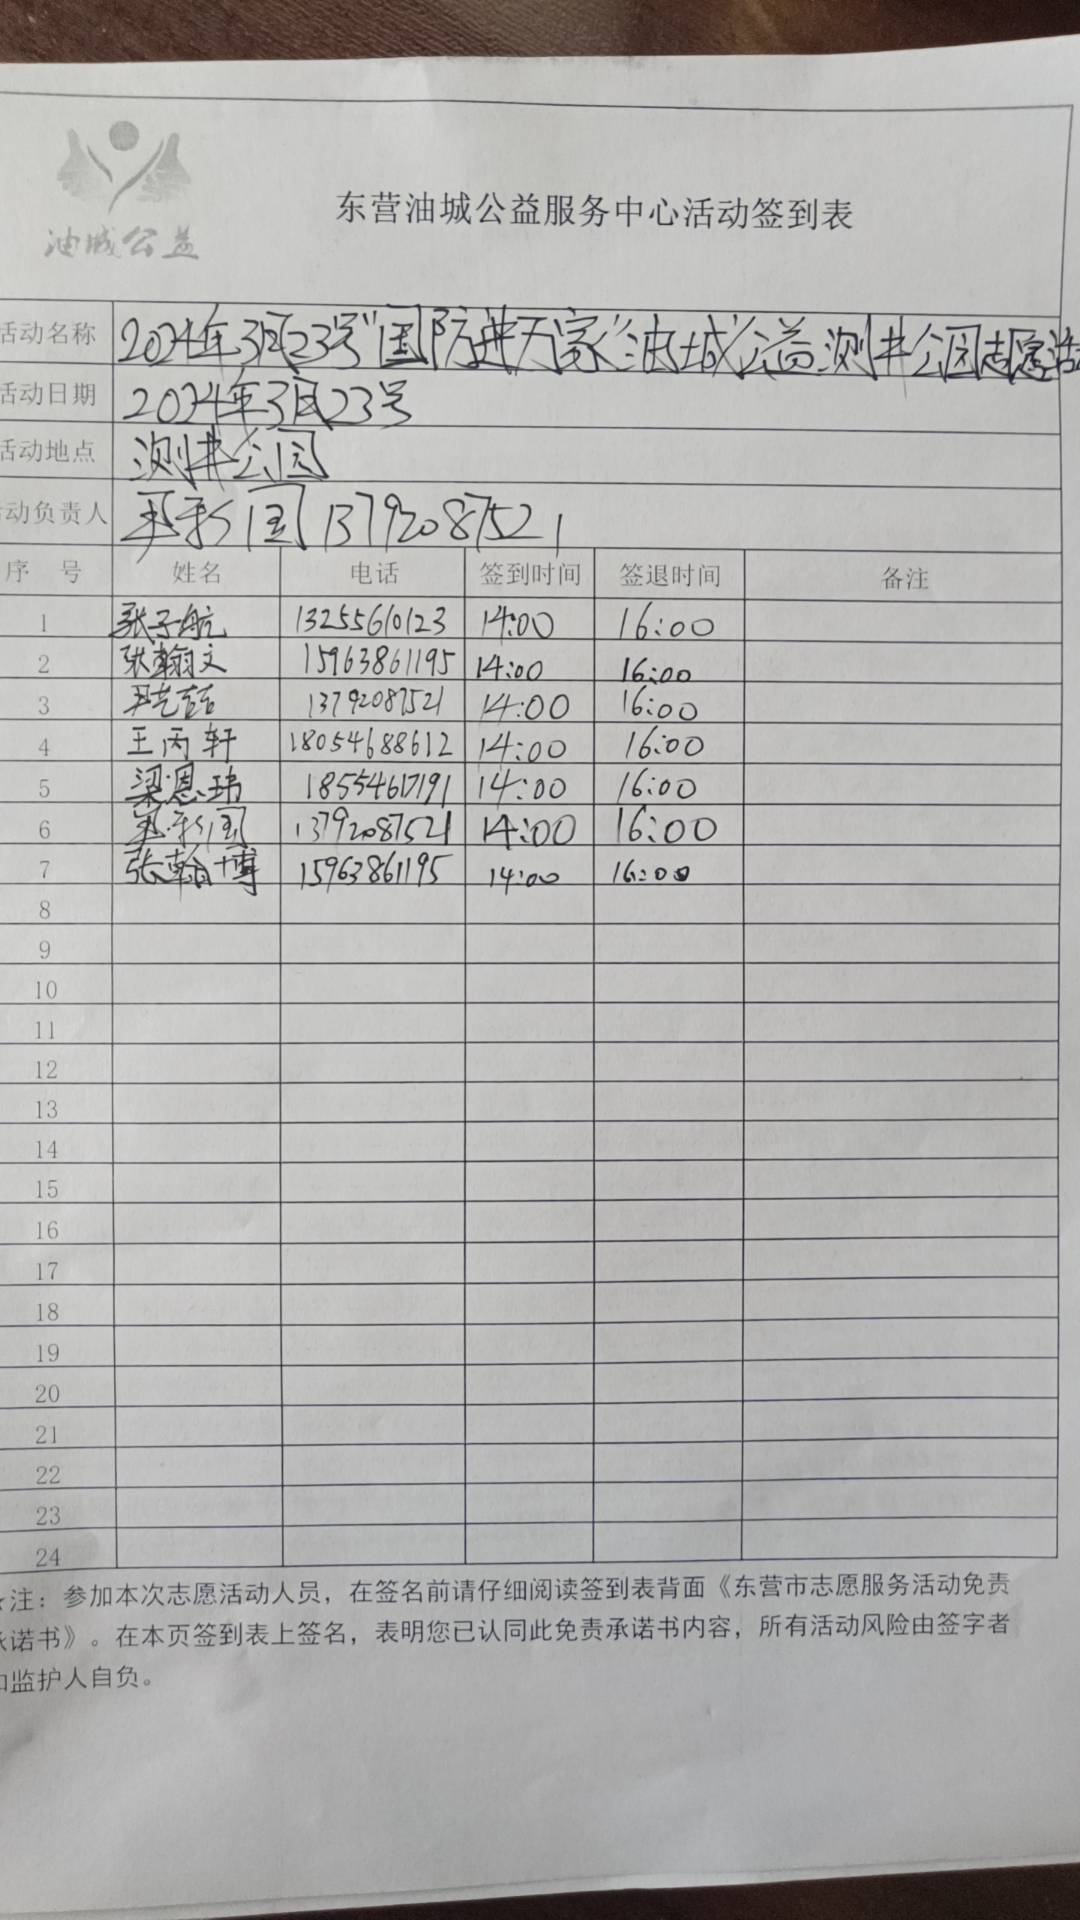 油城公益
东营油城公益服务中心活动签到表
活动名称 2024年3月23号"国防进万家"油城公益测井公园志愿活动
活动日期 2024年3月23号
活动地点 测井公园
活动负责人 国 13792087521
序 号 姓名 电话 签到时间 签退时间 备注
1 张子航 13255610123 14:00 16:00
2 张翰文 15963861195 14:00 16:00
3 13792087521 14:00 16:00
4 王丙轩 18054688612 14:00 16:00
5 梁恩玮 18554617191 14:00 16:00
6 国 13792087521 14:00 16:00
7 张翰博 15963861195 14:00 16:00
8
9
10
11
12
13
14
15
16
17
18
19
20
21
22
23
24
注：参加本次志愿活动人员，在签名前请仔细阅读签到表背面《东营市志愿服务活动免责
承诺书》。在本页签到表上签名，表明您已认同此免责承诺书内容，所有活动风险由签字者
和监护人自负。